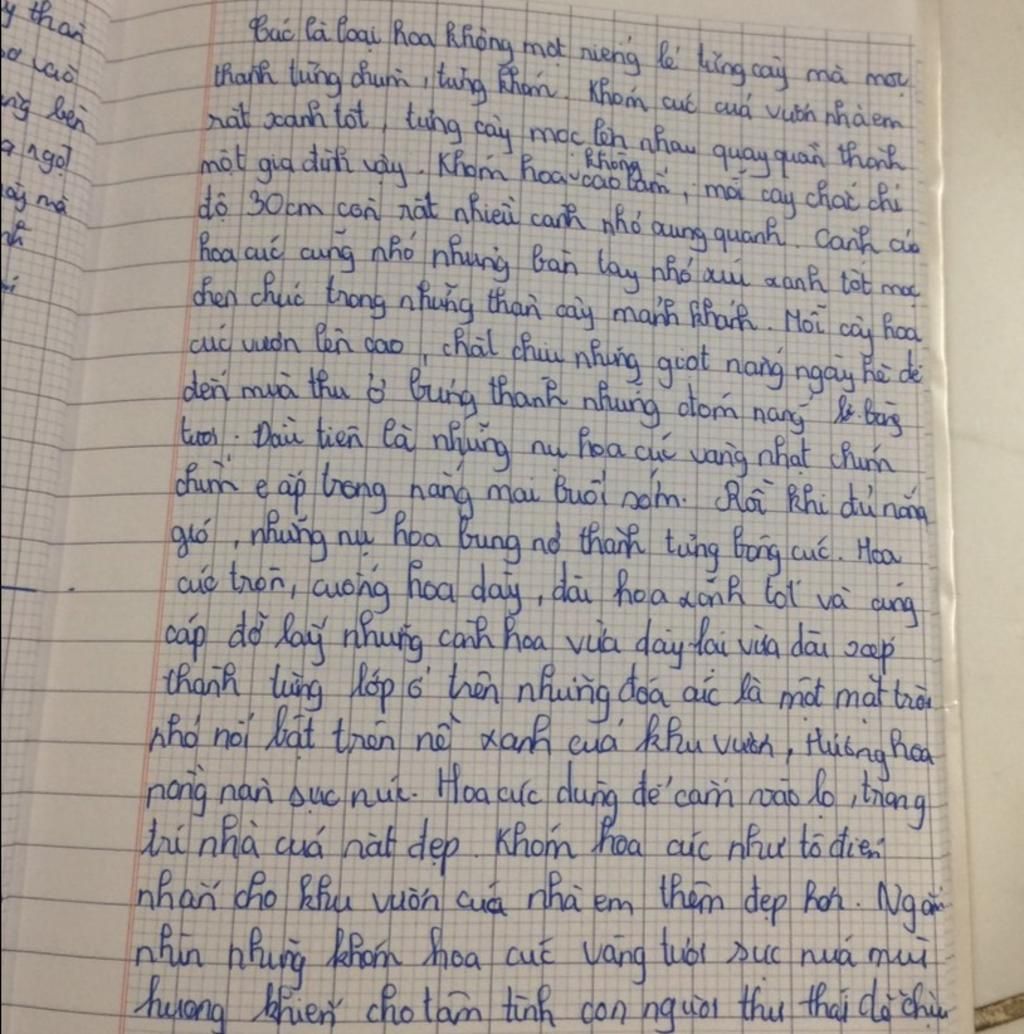 y thai
vào
ng bên
a ngọt
ây mà
nh
Cúc là loại hoa không mọt riêng lẻ từng cây mà mọc
thành từng chùm, từng khóm. Khóm cúc cuả vườn nhà em
rất xanh tốt, từng cây mọc lên nhau quay quần thành
một gia đình vậy. Khóm hoa không cao lắm, mỗi cây chắc chỉ
độ 30cm còn rất nhiều cành nhỏ xung quanh. Cành của
hoa cúc cũng nhỏ những bàn tay nhỏ xíu xanh tốt mọc
chen chúc trong những thân cây mảnh khảnh. Mỗi cây hoa
cúc vươn lên cao, chắt chiu những giọt nắng ngày hè để
đến muà thu ở bừng thành những đóm nắng bông
tươi. Đầu tiên là những nụ hoa cúc vàng nhạt chúm
chím e ấp trong nắng mai buổi sớm. Rồi khi đủ nắng
gió, những nụ hoa bung nở thành từng bông cúc. Hoa
cúc tròn, cuống hoa dày, đài hoa xanh tốt và cứng
cáp đỡ lấy những cánh hoa vừa dày lại vừa dài xếp
thành từng lớp ở trên những đóa cúc là một mặt trời
nhỏ nổi bật trên nề xanh cuả khu vườn, Hương hoa
nồng nàn sực nức. Hoa cúc dùng để cắm vào lọ, trang
trí nhà cuả rất đẹp. Khóm hoa cúc như tô điểm
nhấn cho khu vườn cuả nhà em thêm đẹp hơn. Ngắm
nhìn những khóm hoa cúc vàng tươi sực nuả mùi
hương khiến cho tâm tình con người thư thái dễ chịu